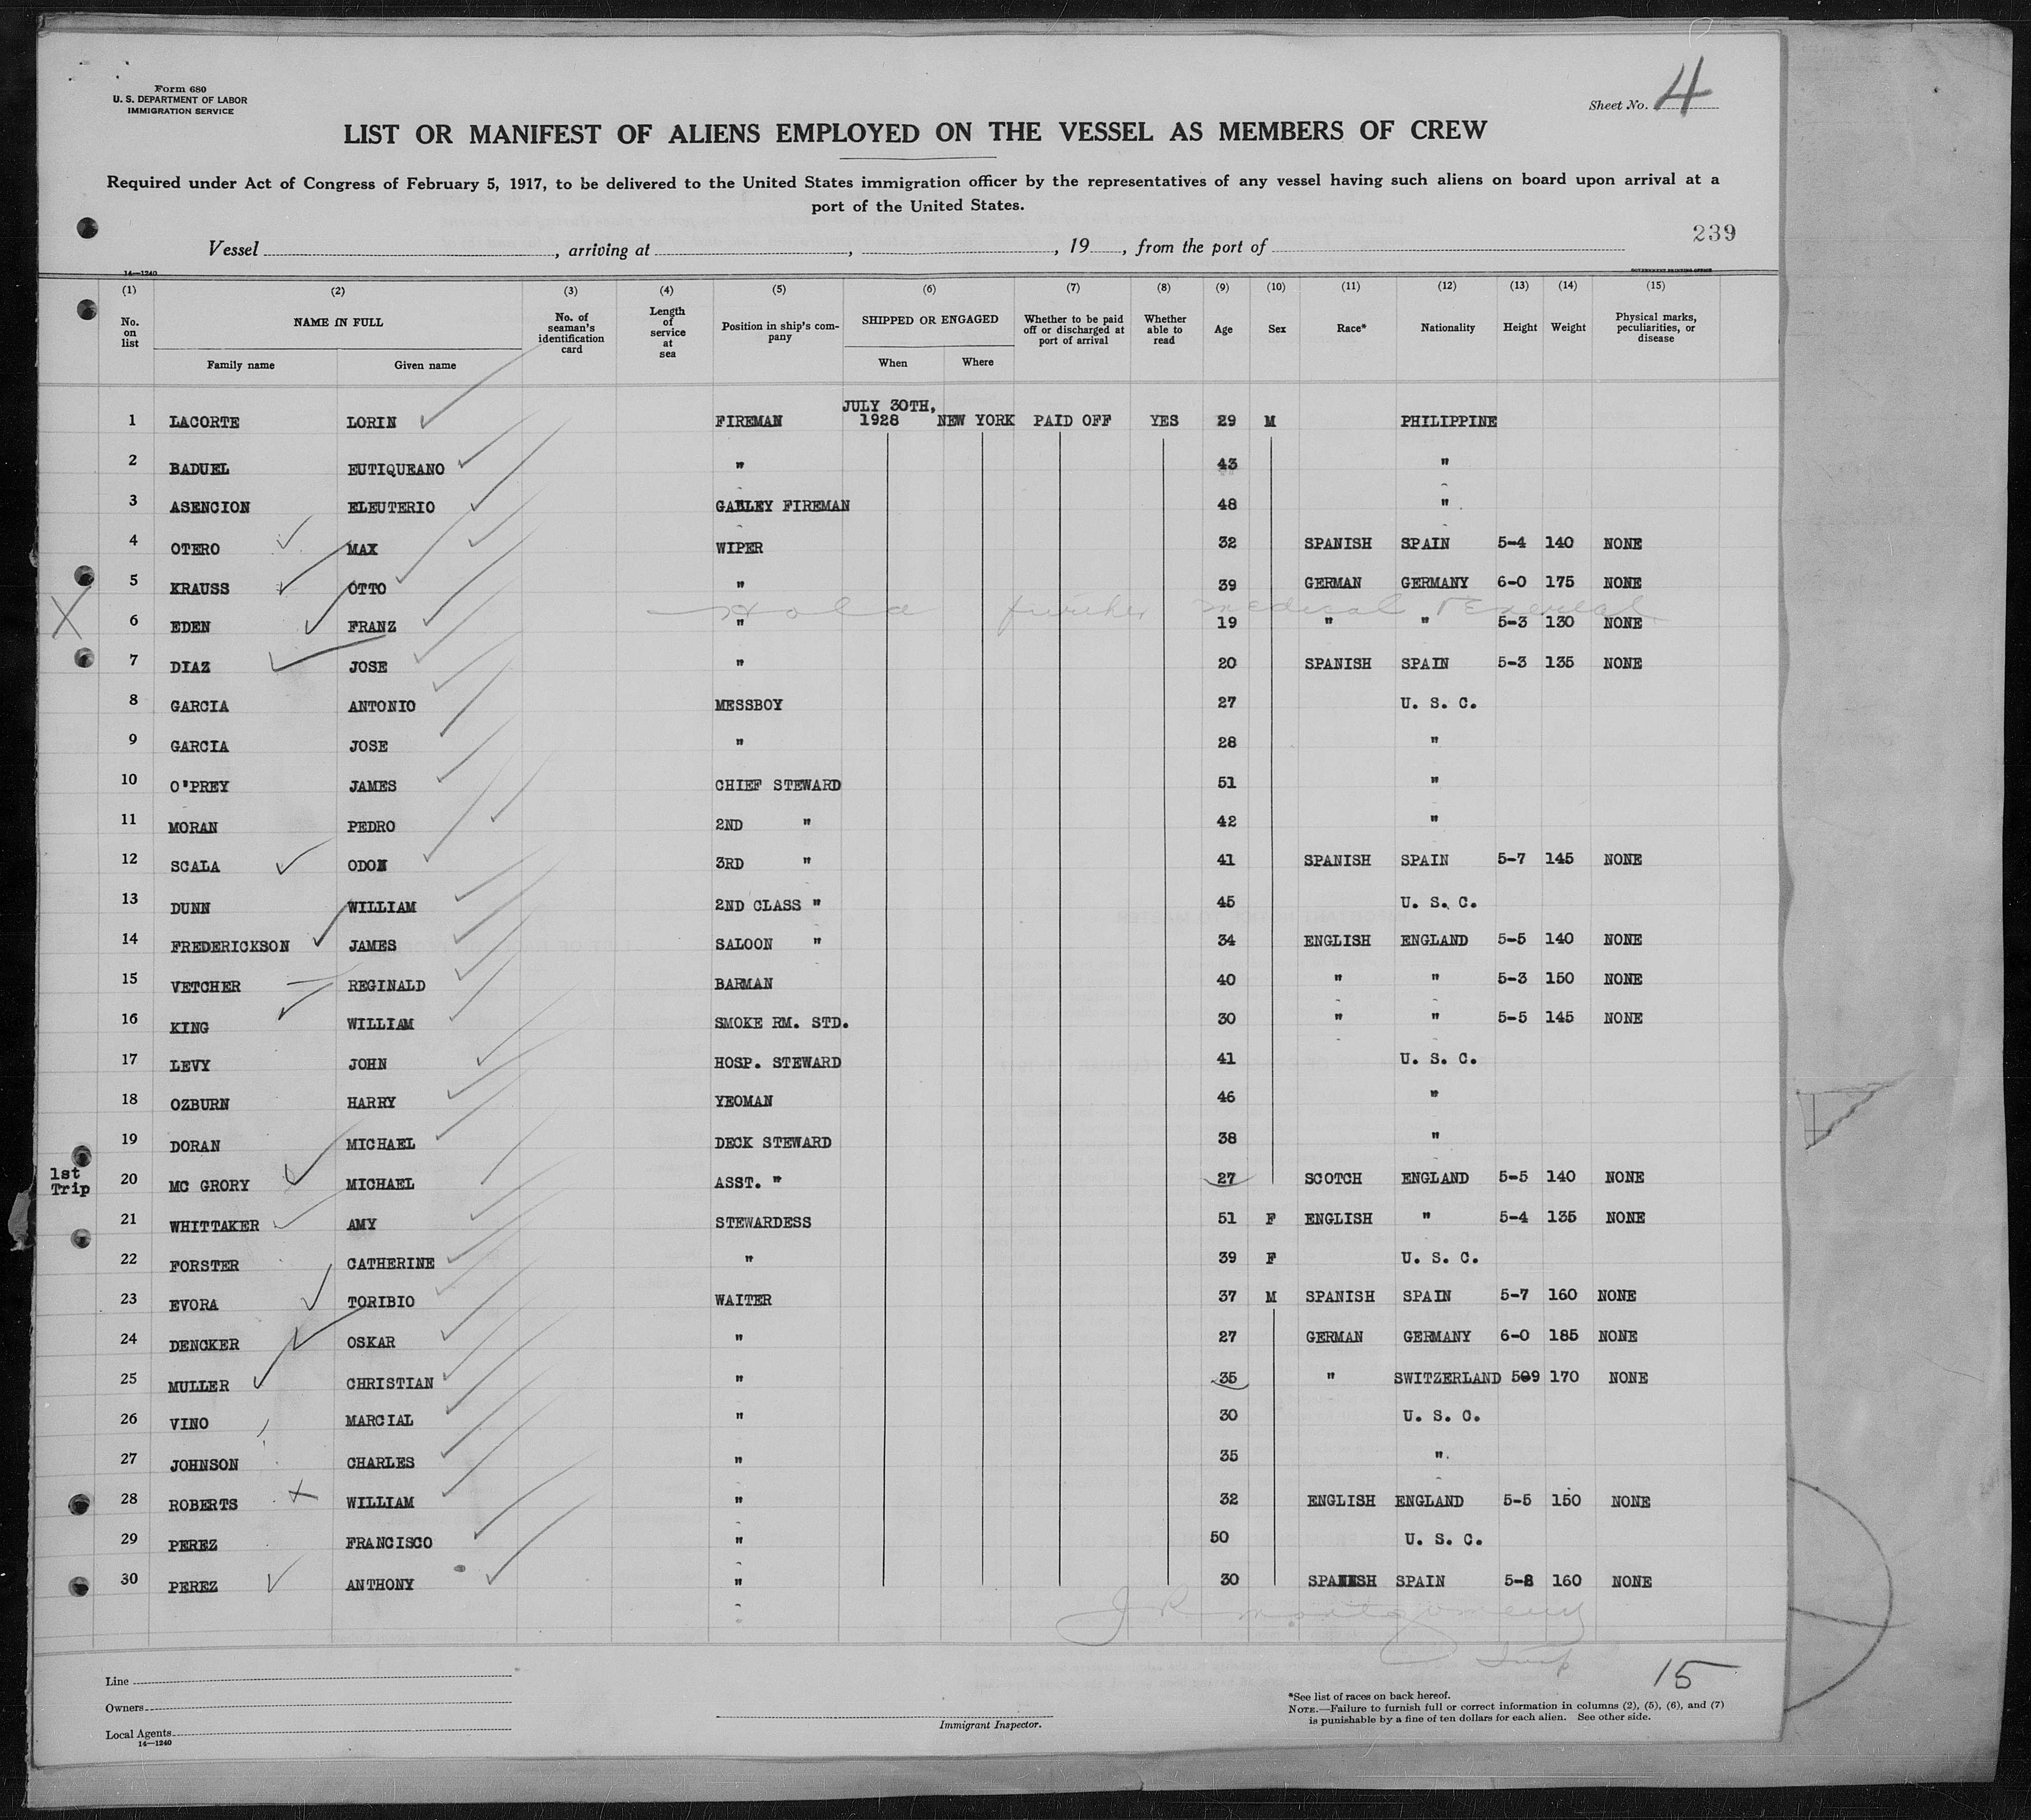 Form 680
U. S. DEPARTMENT OF LABOR
IMMIGRATION SERVICE
Sheet No. 4
LIST OR MANIFEST OF ALIENS EMPLOYED ON THE VESSEL AS MEMBERS OF CREW
Required under Act of Congress of February 5, 1917, to be delivered to the United States immigration officer by the representatives of any vessel having such aliens on board upon arrival at a
port of the United States.
239
Vessel , arriving at , , 19 , from the port of
14—1240 GOVERNMENT PRINTING OFFICE
(1) (2) (3) (4) (5) (6) (7) (8) (9) (10) (11) (12) (13) (14) (15)
No. on list NAME IN FULL Family name Given name No. of seaman's identification card Length of service at sea Position in ship's company SHIPPED OR ENGAGED When Where Whether to be paid off or discharged at port of arrival Whether able to read Age Sex Race* Nationality Height Weight Physical marks, peculiarities, or disease
1 LACORTE LORIN FIREMAN JULY 30TH, 1928 NEW YORK PAID OFF YES 29 M PHILIPPINE
2 BADUEL EUTIQUEANO " 43 "
3 ASENCION ELEUTERIO GALLEY FIREMAN 48 "
4 OTERO MAX WIPER 32 SPANISH SPAIN 5-4 140 NONE
5 KRAUSS OTTO " 39 GERMAN GERMANY 6-0 175 NONE
Hold further medical
X 6 EDEN FRANZ " 19 " " 5-3 130 NONE
7 DIAZ JOSE " 20 SPANISH SPAIN 5-3 135 NONE
8 GARCIA ANTONIO MESSBOY 27 U. S. C.
9 GARCIA JOSE " 28 "
10 O'PREY JAMES CHIEF STEWARD 51 "
11 MORAN PEDRO 2ND " 42 "
12 SCALA ODON 3RD " 41 SPANISH SPAIN 5-7 145 NONE
13 DUNN WILLIAM 2ND CLASS " 45 U. S. C.
14 FREDERICKSON JAMES SALOON " 34 ENGLISH ENGLAND 5-5 140 NONE
15 VETCHER REGINALD BARMAN 40 " " 5-3 150 NONE
16 KING WILLIAM SMOKE RM. STD. 30 " " 5-5 145 NONE
17 LEVY JOHN HOSP. STEWARD 41 U. S. C.
18 OZBURN HARRY YEOMAN 46 "
19 DORAN MICHAEL DECK STEWARD 38 "
1st Trip 20 MC GRORY MICHAEL ASST. " 27 SCOTCH ENGLAND 5-5 140 NONE
21 WHITTAKER AMY STEWARDESS 51 F ENGLISH " 5-4 135 NONE
22 FORSTER CATHERINE " 39 F U. S. C.
23 EVORA TORIBIO WAITER 37 M SPANISH SPAIN 5-7 160 NONE
24 DENCKER OSKAR " 27 GERMAN GERMANY 6-0 185 NONE
25 MULLER CHRISTIAN " 35 " SWITZERLAND 509 170 NONE
26 VINO MARCIAL " 30 U. S. C.
27 JOHNSON CHARLES " 35 "
28 ROBERTS WILLIAM " 32 ENGLISH ENGLAND 5-5 150 NONE
29 PEREZ FRANCISCO " 50 U. S. C.
30 PEREZ ANTHONY " 30 SPANISH SPAIN 5-8 160 NONE
J R Montgomery
Insp
15
Line
Owners
Local Agents
14—1240
Immigrant Inspector.
*See list of races on back hereof.
NOTE.—Failure to furnish full or correct information in columns (2), (5), (6), and (7)
is punishable by a fine of ten dollars for each alien. See other side.